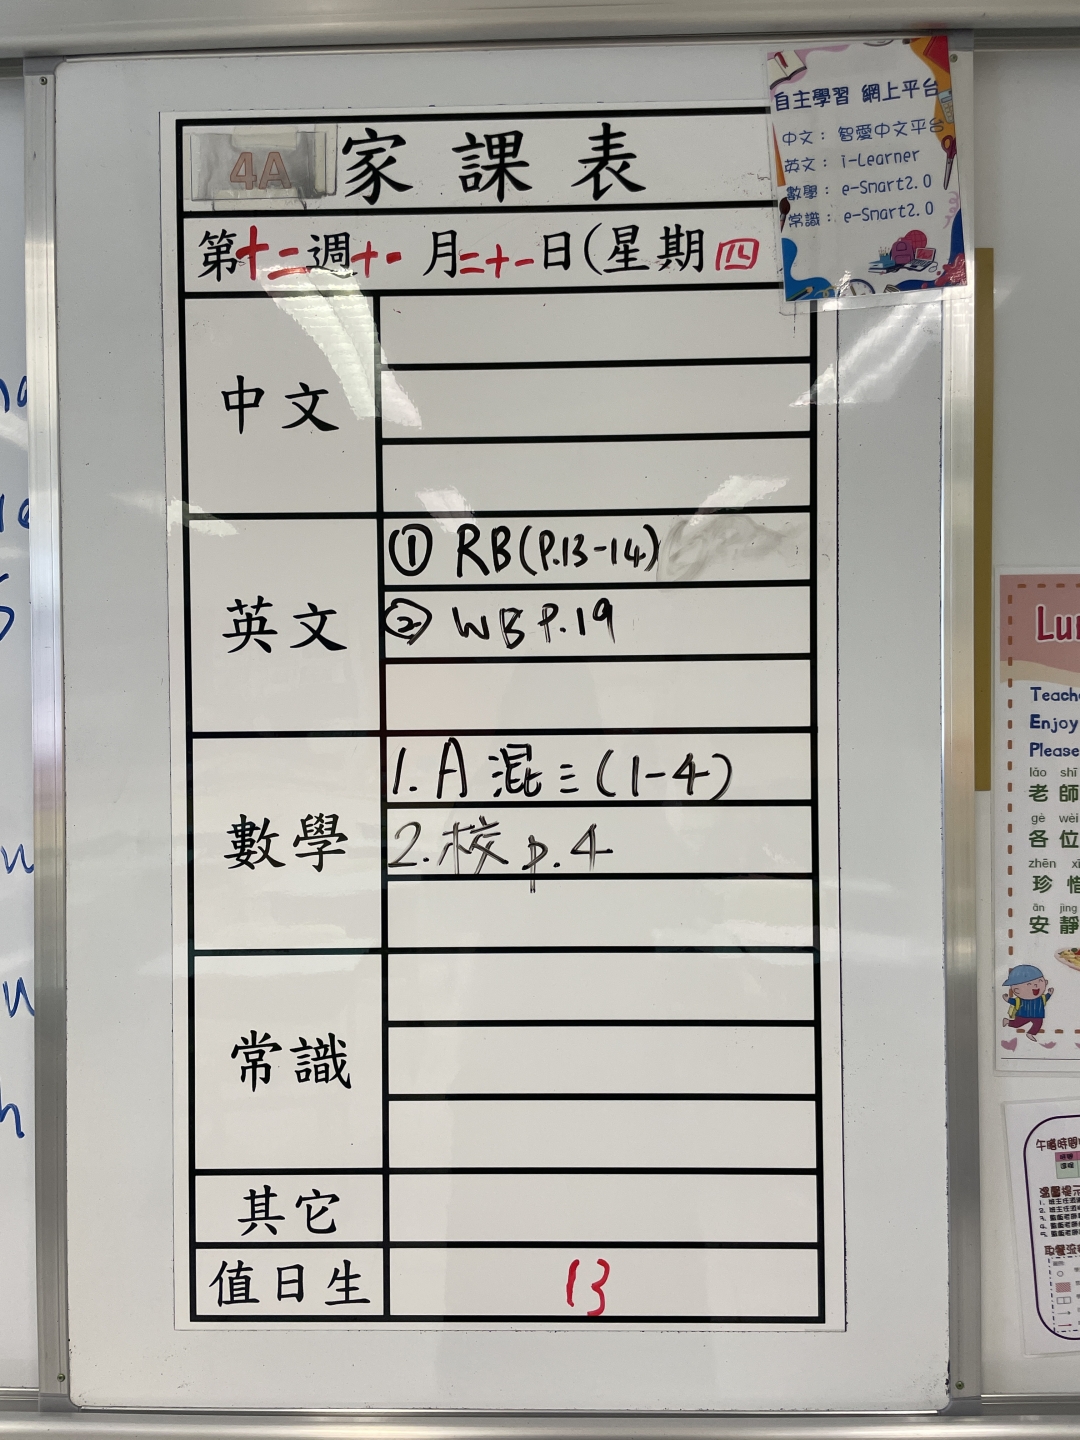 4A 家課表
自主學習 網上平台
中文： 智愛中文平台
英文： i-Learner
數學： e-Smart2.0
常識： e-Smart2.0
第十二週十一月二十一日(星期四
中文
英文
① RB(P.13-14)
② WB P.19
數學
1. A 混三(1-4)
2. 校 p.4
常識
其它
值日生
13
Lu
Teach
Enjoy
Please
lǎo shī
老師
gè wèi
各位
zhēn xī
珍惜
ān jìng
安靜
午膳時間
溫馨提示